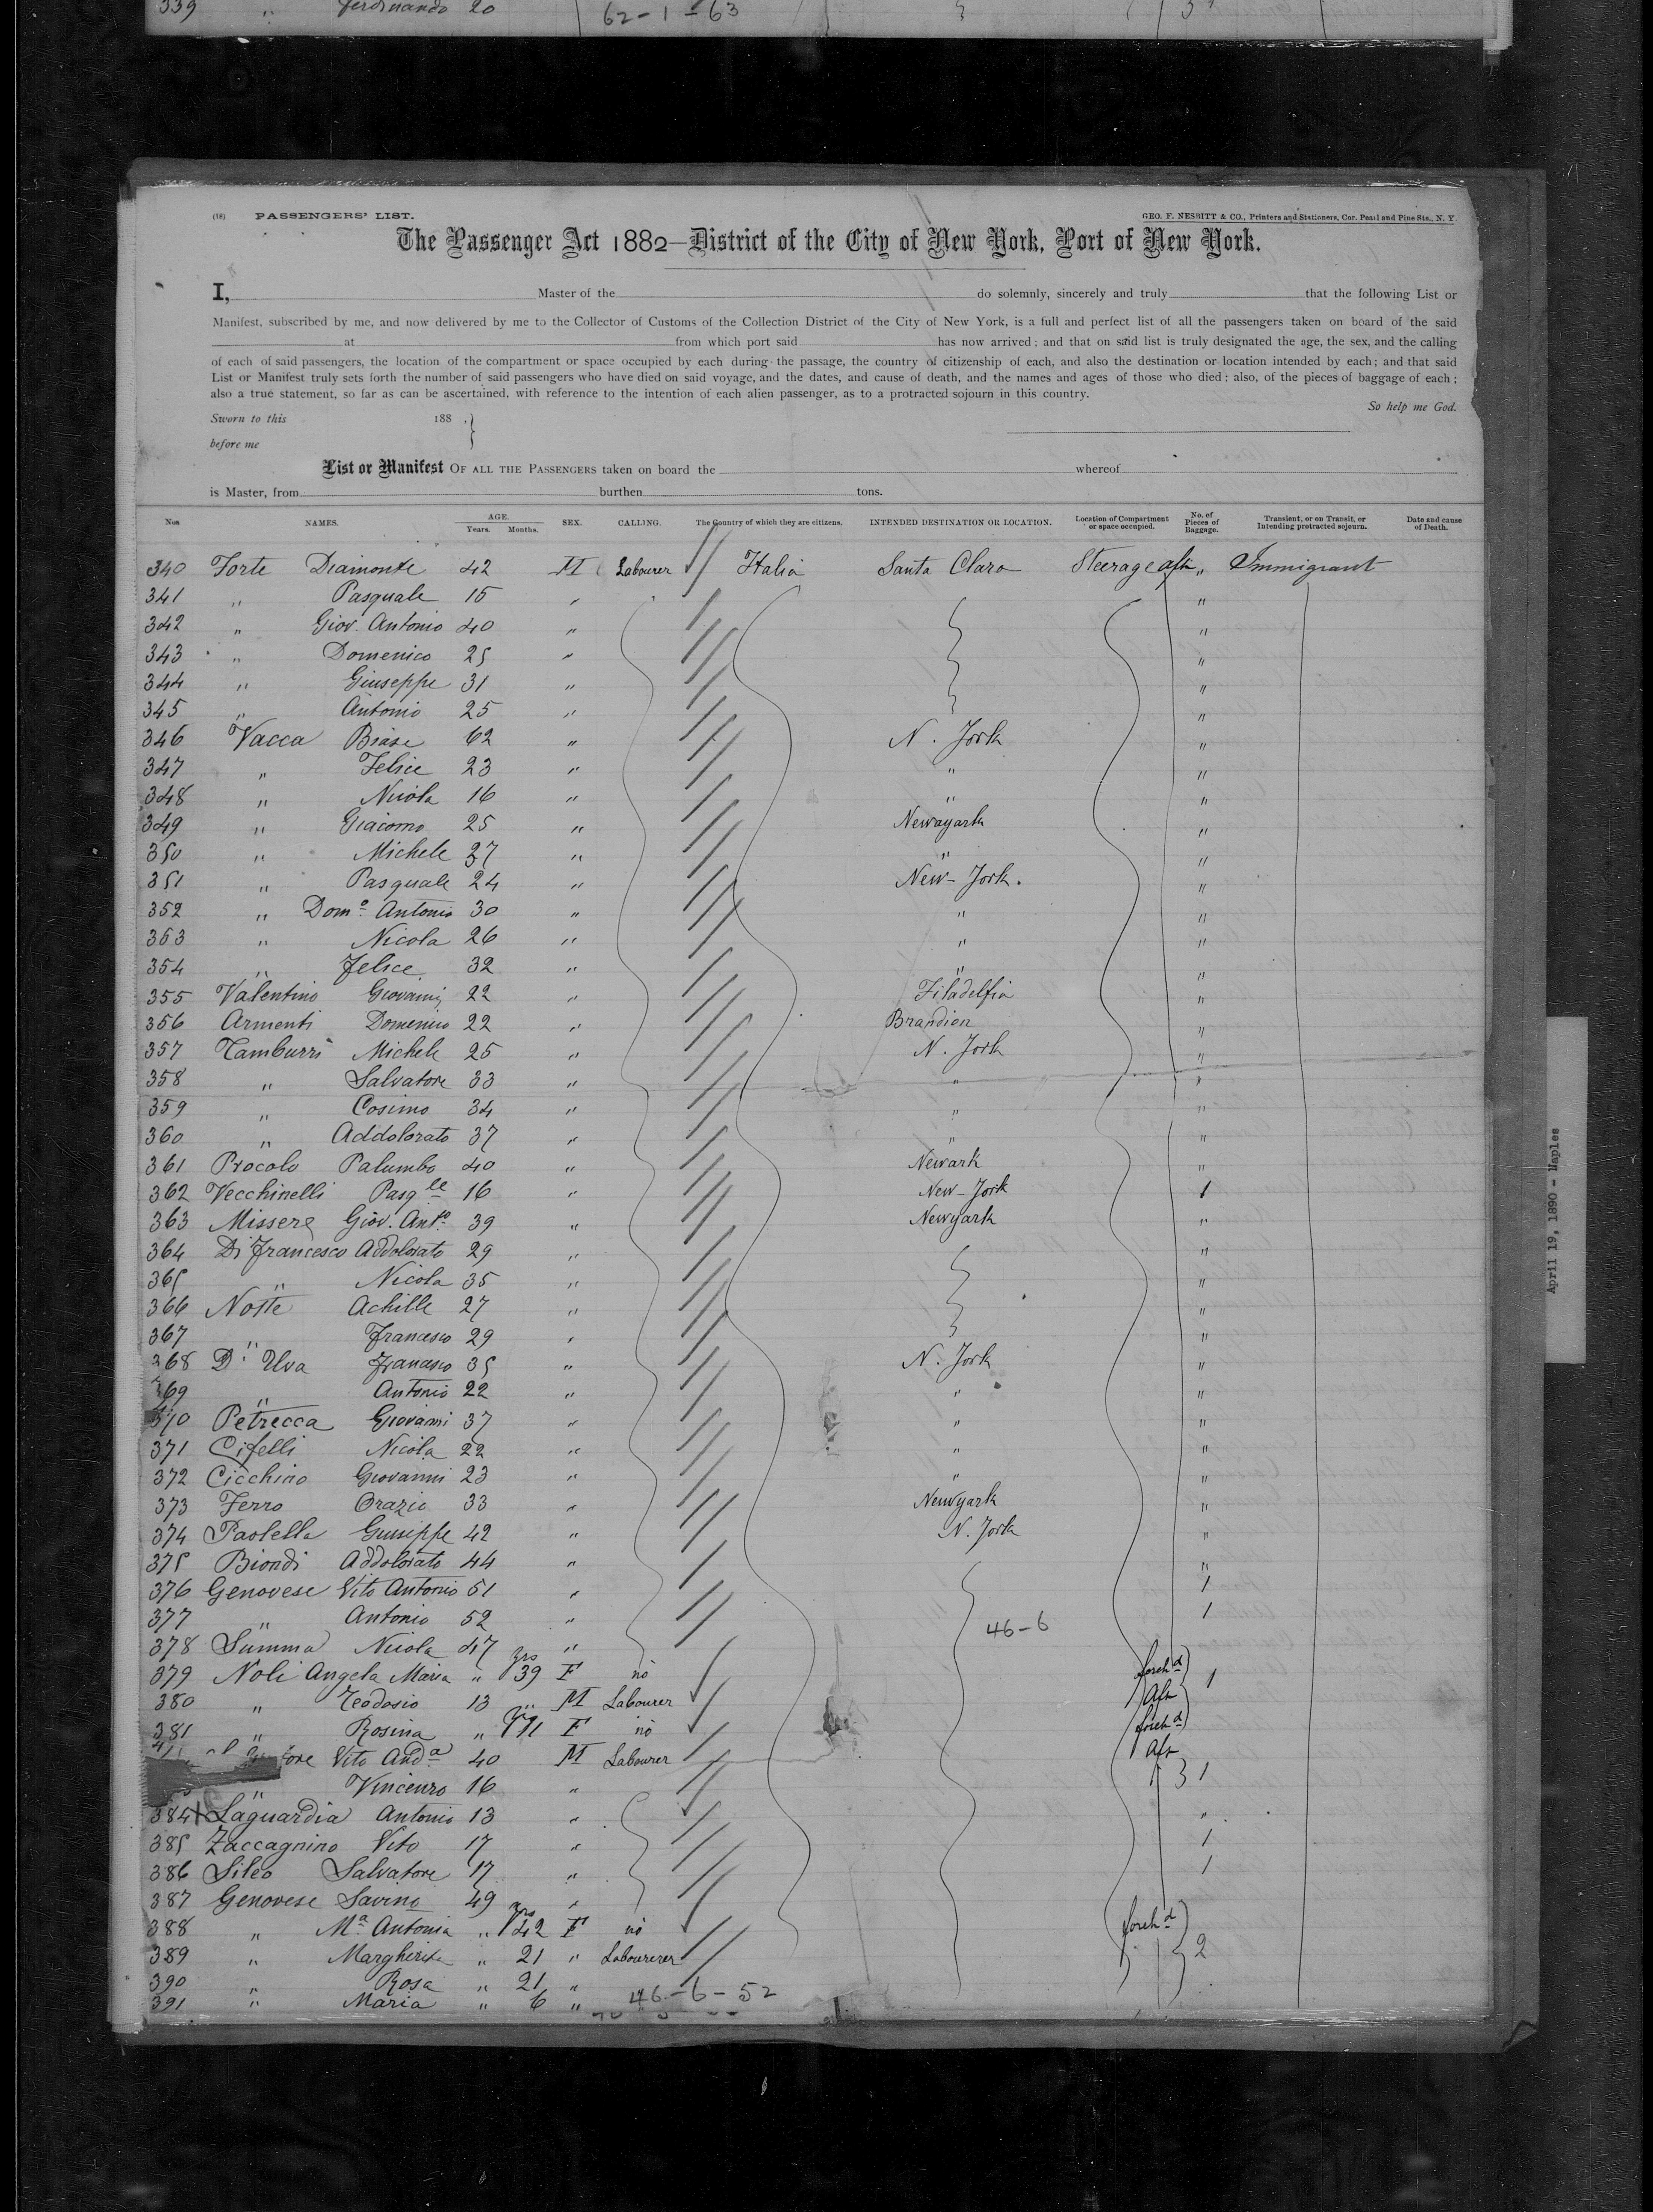 339 " Ferdinando 20 62-1-63 3
(18) PASSENGERS' LIST. GEO. F. NESBITT & CO., Printers and Stationers, Cor. Pearl and Pine Sts., N. Y.
The Passenger Act 1882—District of the City of New York, Port of New York.
I, Master of the do solemnly, sincerely and truly that the following List or
Manifest, subscribed by me, and now delivered by me to the Collector of Customs of the Collection District of the City of New York, is a full and perfect list of all the passengers taken on board of the said
at from which port said has now arrived; and that on said list is truly designated the age, the sex, and the calling
of each of said passengers, the location of the compartment or space occupied by each during the passage, the country of citizenship of each, and also the destination or location intended by each; and that said
List or Manifest truly sets forth the number of said passengers who have died on said voyage, and the dates, and cause of death, and the names and ages of those who died; also, of the pieces of baggage of each;
also a true statement, so far as can be ascertained, with reference to the intention of each alien passenger, as to a protracted sojourn in this country.
So help me God.
Sworn to this 188 .
before me
List or Manifest OF ALL THE PASSENGERS taken on board the whereof
is Master, from burthen tons.
Nos NAMES. AGE. Years. Months. SEX. CALLING. The Country of which they are citizens. INTENDED DESTINATION OR LOCATION. Location of Compartment or space occupied. No. of Pieces of Baggage. Transient, or on Transit, or Intending protracted sojourn. Date and cause of Death.
340 Forte Diamonte 42 M Labourer Italia Santa Clara Steerage aft " Immigrant
341 " Pasquale 15 " "
342 " Giov. Antonio 40 " "
343 " Domenico 25 " "
344 " Giuseppe 31 " "
345 " Antonio 25 " "
346 Vacca Biase 62 " N. Jork "
347 " Felice 23 " " "
348 " Nicola 16 " " "
349 " Giacomo 25 " Newayark "
350 " Michele 27 " " "
351 " Pasquale 24 " New-Jork. "
352 " Domo. Antonio 30 " " "
353 " Nicola 26 " " "
354 " Felice 32 " " "
355 Valentino Giovanni 22 " Filadelfia "
356 Armenti Domenico 22 " Brandion "
357 Tamburri Michele 25 " N. Jork "
358 " Salvatore 33 " " "
359 " Cosimo 34 " " "
360 " Addolorato 37 " " "
361 Procolo Palumbo 40 " Newark "
362 Vecchinelli Pasqle 16 " New-Jork 1
363 Missere Giov. Anto. 39 " Newyark "
364 Di Francesco Addolorato 29 " "
365 " Nicola 35 " "
366 Notte Achille 27 " "
367 " Francesco 29 " "
368 D' Uva Francesco 35 " N. Jork "
369 " Antonio 22 " " "
370 Petrecca Giovanni 37 " " "
371 Cifelli Nicola 22 " " "
372 Cicchino Giovanni 23 " " "
373 Ferro Orazio 33 " Newyark "
374 Paolella Giuseppe 42 " N. Jork "
375 Biondi Addolorato 44 " "
376 Genovese Vito Antonio 51 " 1
377 " Antonio 52 " 1
378 Summa Nicola 47 " 46-6
379 Noli Angela Maria " yrs 39 F no foreh d 1
380 " Teodosio 13 " M Labourer Aft
381 " Rosina " 11 F no foreh d
ore Vito Anda 40 M Labourer Aft
" Vincenzo 16 " 3 1
384 + Laguardia Antonio 13 " "
385 Zaccagnino Vito 17 " 1
386 Sileo Salvatore 17 " 1
387 Genovese Savino 49 "
388 " Ma. Antonia " yrs 42 F no foreh d
389 " Margherita " 21 " Labourerer 2
390 " Rosa " 21 "
391 " Maria " 6 " 46-6-52
April 19, 1890 - Naples